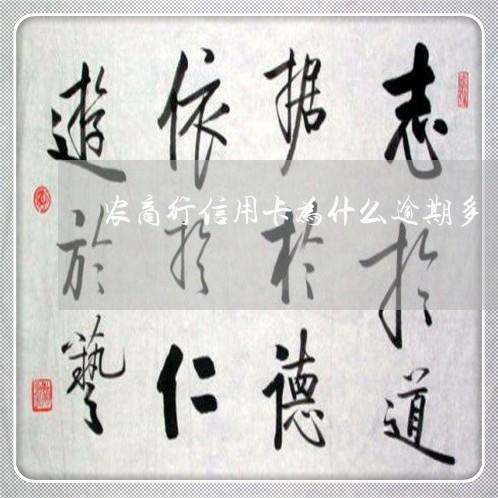 志扵道
据於德
依扵仁
遊於藝
农商行信用卡為什么逾期多